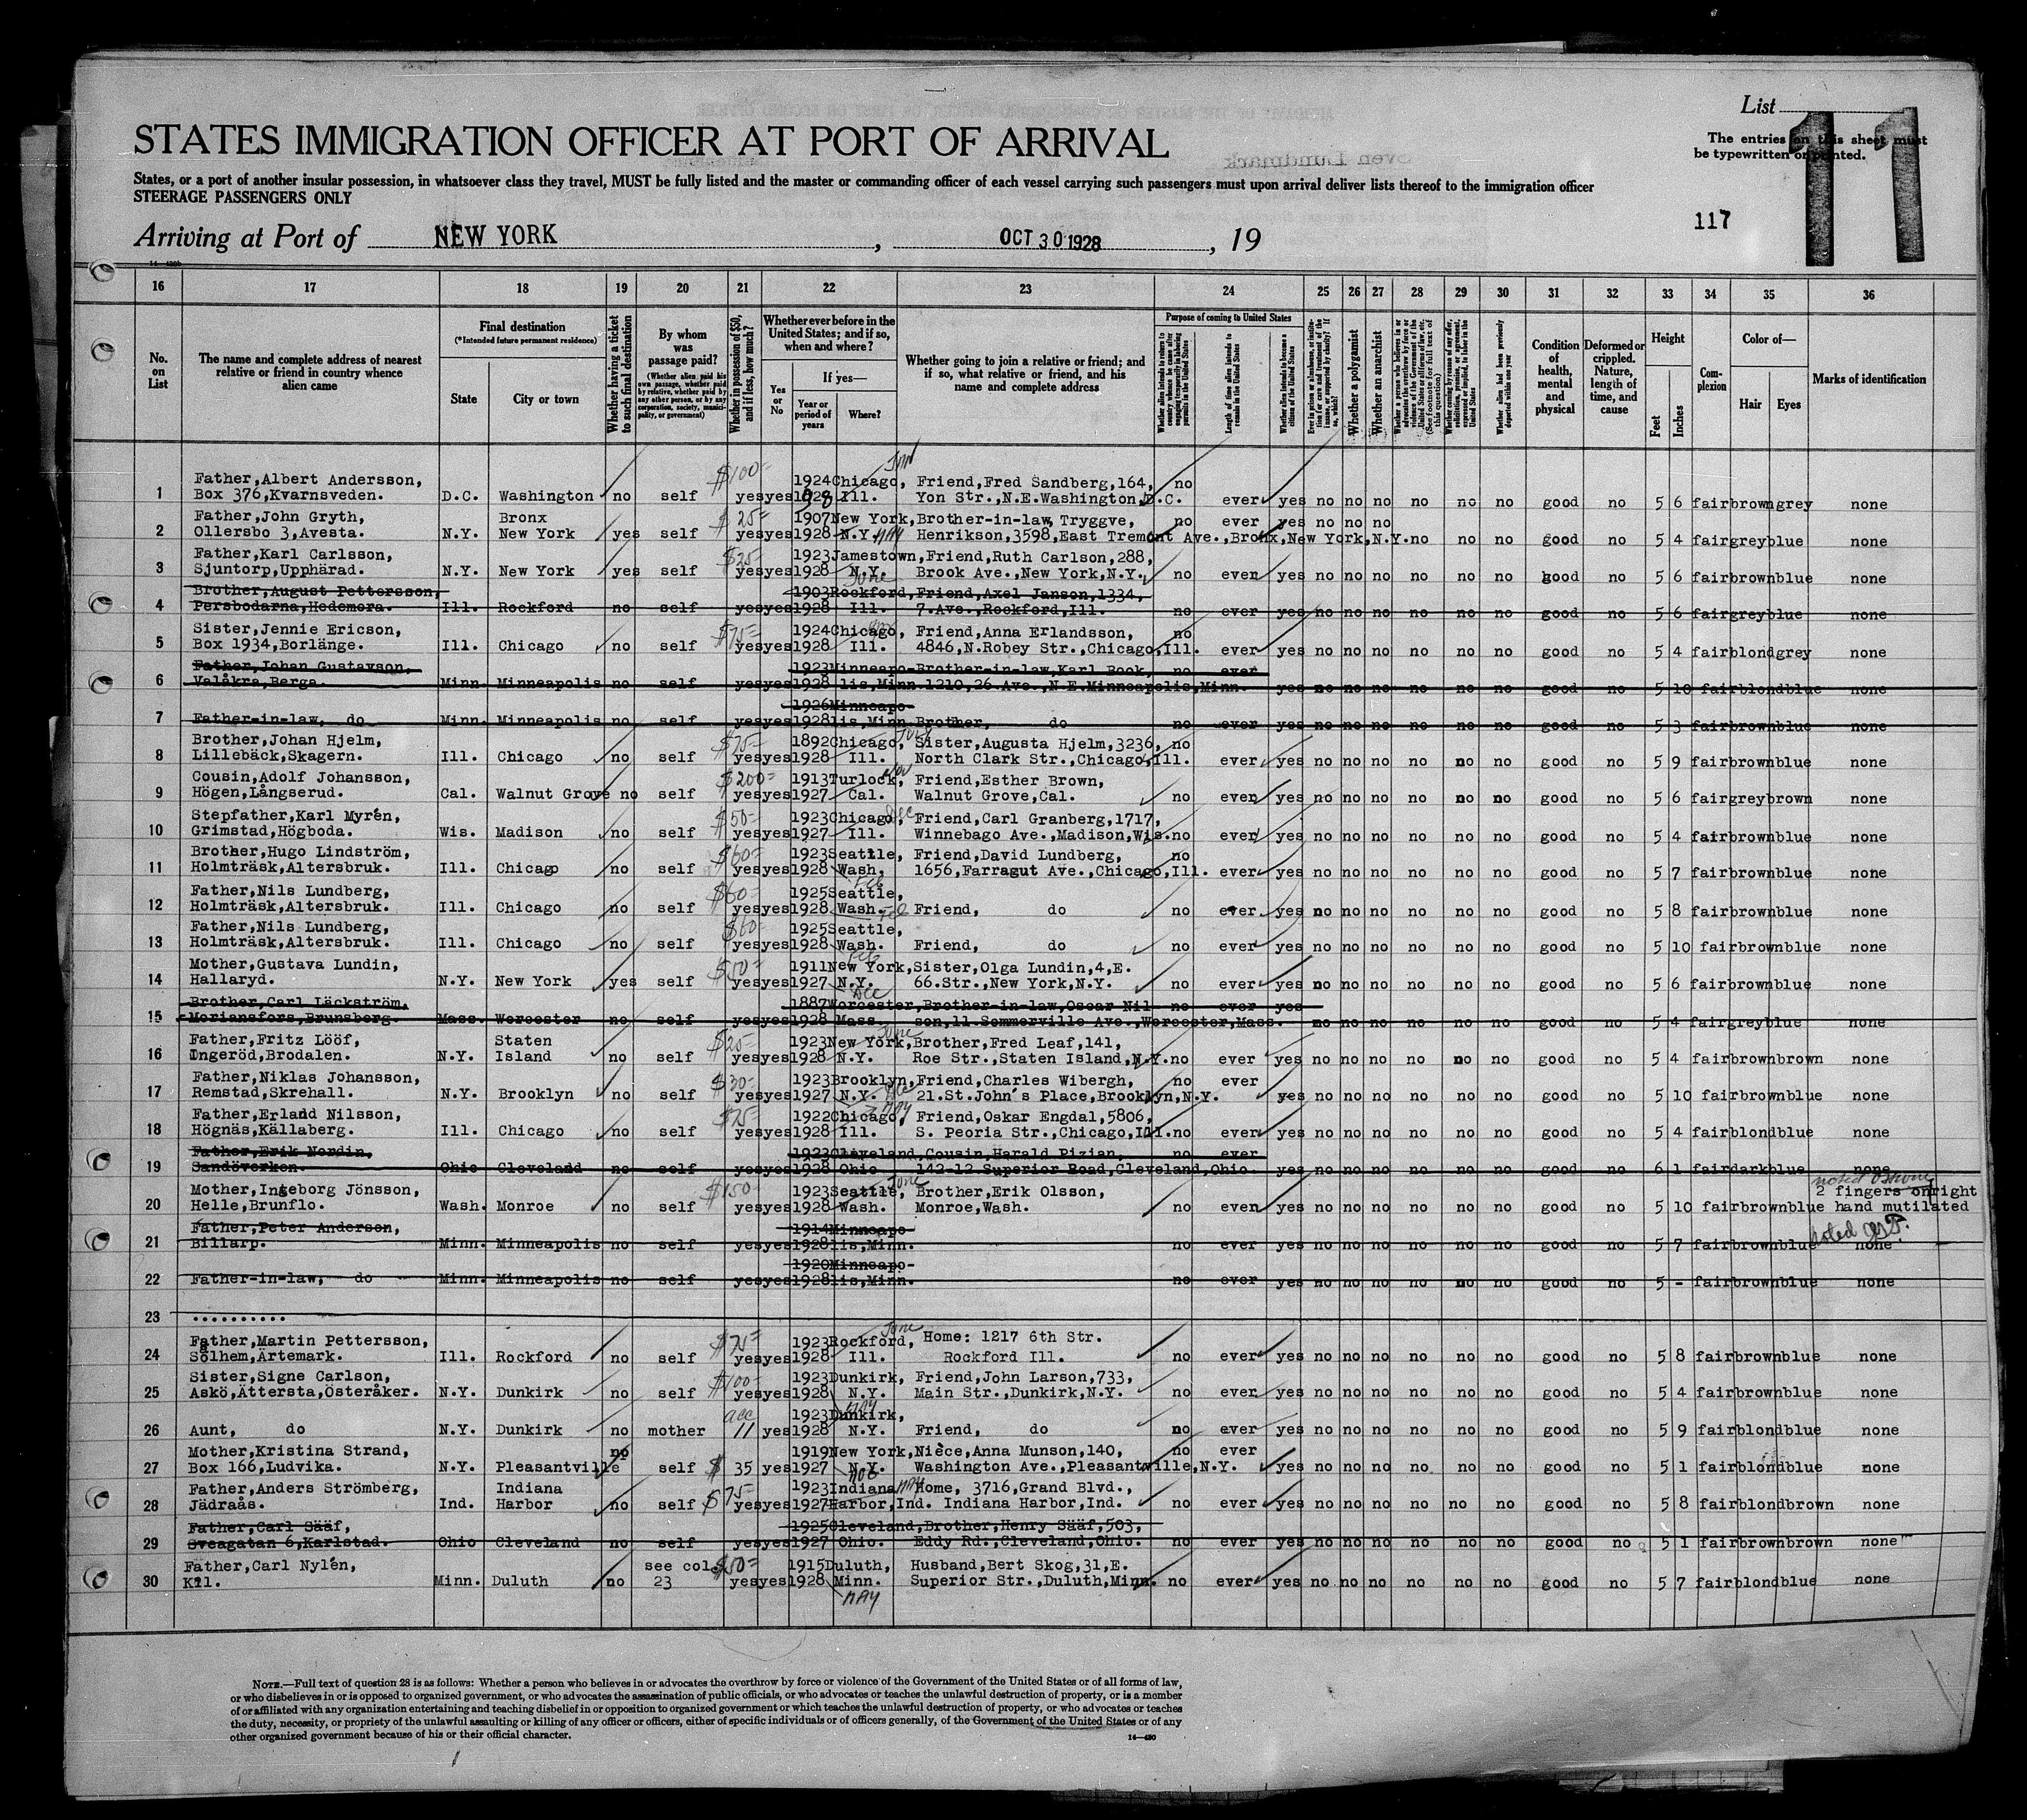 List
11
STATES IMMIGRATION OFFICER AT PORT OF ARRIVAL
The entries on this sheet must
be typewritten or printed.
States, or a port of another insular possession, in whatsoever class they travel, MUST be fully listed and the master or commanding officer of each vessel carrying such passengers must upon arrival deliver lists thereof to the immigration officer
STEERAGE PASSENGERS ONLY
117
Arriving at Port of NEW YORK , OCT 30 1928 , 19
16 17 18 19 20 21 22 23 24 25 26 27 28 29 30 31 32 33 34 35 36
No. on List
The name and complete address of nearest relative or friend in country whence alien came
Final destination
(*Intended future permanent residence)
State
City or town
Whether having a ticket to such final destination
By whom was passage paid?
(Whether alien paid his own passage, whether paid by relative, whether paid by any other person, or by any corporation, society, municipality, or government)
Whether in possession of $50, and if less, how much?
Whether ever before in the United States; and if so, when and where?
Yes or No
If yes—
Year or period of years
Where?
Whether going to join a relative or friend; and if so, what relative or friend, and his name and complete address
Purpose of coming to United States
Length of time alien intends to remain in the United States
Whether alien intends to become a citizen of the United States
Whether a polygamist
Whether an anarchist
Condition of health, mental and physical
Deformed or crippled. Nature, length of time, and cause
Height
Feet
Inches
Complexion
Color of—
Hair
Eyes
Marks of identification
Father,Albert Andersson, $100- 1924 Chicago, Friend,Fred Sandberg,164, no
1 Box 376,Kvarnsveden. D.C. Washington no self yes yes 1928 Ill. Yon Str.,N.E.Washington,D.C. ever yes no no no no no no good no 5 6 fair brown grey none
Father,John Gryth, Bronx $25= 1907 New York, Brother-in-law, Tryggve, no ever yes no no no
2 Ollersbo 3,Avesta. N.Y. New York yes self yes yes 1928 N.Y. MAY Henrikson,3598,East Tremont Ave.,Bronx,New York,N.Y. no no no good no 5 4 fair grey blue none
Father,Karl Carlsson, $25= 1923 Jamestown, Friend,Ruth Carlson,288,
3 Sjuntorp,Upphärad. N.Y. New York yes self yes yes 1928 N.Y. Brook Ave.,New York,N.Y. no ever yes no no no no no no good no 5 6 fair brown blue none
Brother,August Pettersson, June 1903 Rockford, Friend,Axel Janson,1334,
4 Persbodarna,Hedemora. Ill. Rockford no self yes yes 1928 Ill. 7.Ave.,Rockford,Ill. no ever yes no no no no no no good no 5 6 fair grey blue none
Sister,Jennie Ericson, $75= 1924 Chicago, Friend,Anna Erlandsson, no
5 Box 1934,Borlänge. Ill. Chicago no self yes yes 1928 Ill. 4846,N.Robey Str.,Chicago,Ill. ever yes no no no no no no good no 5 4 fair blond grey none
Father,Johan Gustavson, 1923 Minneapo- Brother-in-law,Karl Book, no ever
6 Valåkra,Berga. Minn. Minneapolis no self yes yes 1928 lis,Minn. 1210,26 Ave.,N.E.Minneapolis,Minn. yes no no no no no no good no 5 10 fair blond blue none
1926 Minneapo-
7 Father-in-law, do Minn. Minneapolis no self yes yes 1928 lis,Minn. Brother, do no ever yes no no no no no no good no 5 3 fair brown blue none
Brother,Johan Hjelm, $75= 1892 Chicago, Sister,Augusta Hjelm,3236, no
8 Lillebäck,Skagern. Ill. Chicago no self yes yes 1928 Ill. North Clark Str.,Chicago,Ill. ever yes no no no no no no good no 5 9 fair brown blue none
Cousin,Adolf Johansson, $200= 1913 Turlock, Friend,Esther Brown,
9 Högen,Långserud. Cal. Walnut Grove no self yes yes 1927 Cal. Walnut Grove,Cal. no ever yes no no no no no no good no 5 6 fair grey brown none
Stepfather,Karl Myrén, $50- 1923 Chicago, Dec Friend,Carl Granberg,1717,
10 Grimstad,Högboda. Wis. Madison no self yes yes 1927 Ill. Winnebago Ave.,Madison,Wis. no ever yes no no no no no no good no 5 4 fair brown blue none
Brother,Hugo Lindström, $60= 1923 Seattle, Friend,David Lundberg, no
11 Holmträsk,Altersbruk. Ill. Chicago no self yes yes 1928 Wash. 1656,Farragut Ave.,Chicago,Ill. ever yes no no no no no no good no 5 7 fair brown blue none
Father,Nils Lundberg, $60= 1925 Seattle, Feb
12 Holmträsk,Altersbruk. Ill. Chicago no self yes yes 1928 Wash. Friend, do no ever yes no no no no no no good no 5 8 fair brown blue none
Father,Nils Lundberg, $60- 1925 Seattle, Feb
13 Holmträsk,Altersbruk. Ill. Chicago no self yes yes 1928 Wash. Friend, do no ever yes no no no no no no good no 5 10 fair brown blue none
Mother,Gustava Lundin, $50= 1911 New York, Feb Sister,Olga Lundin,4,E.
14 Hallaryd. N.Y. New York yes self yes yes 1927 N.Y. Dec 66.Str.,New York,N.Y. no ever yes no no no no no no good no 5 6 fair brown blue none
Brother,Carl Läckström, 1887 Worcester, Brother-in-law,Oscar Nil- no ever yes
15 Moriansfors,Brunsberg. Mass. Worcester no self yes yes 1928 Mass. son,11.Sommerville Ave.,Worcester,Mass. no no no no no no good no 5 4 fair grey blue none
Father,Fritz Lööf, Staten $25= 1923 New York, June Brother,Fred Leaf,141,
16 Ingeröd,Brodalen. N.Y. Island no self yes yes 1928 N.Y. Roe Str.,Staten Island,N.Y. no ever yes no no no no no no good no 5 4 fair brown brown none
Father,Niklas Johansson, $30- 1923 Brooklyn, Friend,Charles Wibergh, no ever
17 Remstad,Skrehall. N.Y. Brooklyn no self yes yes 1927 N.Y. Dec 21.St.John's Place,Brooklyn,N.Y. yes no no no no no no good no 5 10 fair brown blue none
Father,Erland Nilsson, $75- 1922 Chicago, MAY Friend,Oskar Engdal,5806,
18 Högnäs,Källaberg. Ill. Chicago no self yes yes 1928 Ill. S. Peoria Str.,Chicago,Ill. no ever yes no no no no no no good no 5 4 fair blond blue none
Father,Erik Nordin, 1923 Cleveland, Cousin,Harald Pizian, no ever
19 Sandöverken. Ohio Cleveland no self yes yes 1928 Ohio 142-12 Superior Road,Cleveland,Ohio. yes no no no no no no good no 6 1 fair dark blue none
Mother,Ingeborg Jönsson, $150- 1923 Seattle, June Brother,Erik Olsson, noted 2 fingers on right
20 Helle,Brunflo. Wash. Monroe no self yes yes 1928 Wash. Monroe,Wash. no ever yes no no no no no no good no 5 10 fair brown blue hand mutilated
Father,Peter Anderson, 1914 Minneapo- noted
21 Billarp. Minn. Minneapolis no self yes yes 1928 lis,Minn. no ever yes no no no no no no good no 5 7 fair brown blue none
1920 Minneapo-
22 Father-in-law, do Minn. Minneapolis no self yes yes 1928 lis,Minn. no ever yes no no no no no no good no 5 - fair brown blue none
23 ..........
Father,Martin Pettersson, $75= 1923 Rockford, June Home: 1217 6th Str.
24 Sölhem,Ärtemark. Ill. Rockford no self yes yes 1928 Ill. Rockford Ill. no ever yes no no no no no no good no 5 8 fair brown blue none
Sister,Signe Carlson, $100- 1923 Dunkirk, Friend,John Larson,733,
25 Askö,Ättersta,Österåker. N.Y. Dunkirk no self yes yes 1928 N.Y. MAY Main Str.,Dunkirk,N.Y. no ever yes no no no no no no good no 5 4 fair brown blue none
acc 1923 Dunkirk,
26 Aunt, do N.Y. Dunkirk no mother 11 yes 1928 N.Y. Friend, do no ever yes no no no no no no good no 5 9 fair blond blue none
Mother,Kristina Strand, no 1919 New York, Niece,Anna Munson,140, no ever
27 Box 166,Ludvika. N.Y. Pleasantville self $ 35 yes 1927 N.Y. Washington Ave.,Pleasantville,N.Y. yes no no no no no no good no 5 1 fair blond blue none
Father,Anders Strömberg, Indiana 1923 Indiana Home, 3716,Grand Blvd.,
28 Jädraås. Ind. Harbor no self $75= yes yes 1927 Harbor,Ind. Indiana Harbor,Ind. no ever yes no no no no no no good no 5 8 fair blond brown none
Father,Carl Sääf, 1925 Cleveland, Brother,Henry Sääf,503,
29 Sveagatan 6,Karlstad. Ohio Cleveland no self yes yes 1927 Ohio. Eddy Rd.,Cleveland,Ohio. no ever yes no no no no no no good no 5 1 fair brown brown none
Father,Carl Nylén, see col. $50= 1915 Duluth, Husband,Bert Skog,31,E.
30 Kil. Minn. Duluth no 23 yes yes 1928 Minn. MAY Superior Str.,Duluth,Minn. no ever yes no no no no no no good no 5 7 fair blond blue none
NOTE.—Full text of question 28 is as follows: Whether a person who believes in or advocates the overthrow by force or violence of the Government of the United States or of all forms of law,
or who disbelieves in or is opposed to organized government, or who advocates the assassination of public officials, or who advocates or teaches the unlawful destruction of property, or is a member
of or affiliated with any organization entertaining and teaching disbelief in or opposition to organized government or which teaches the unlawful destruction of property, or who advocates or teaches
the duty, necessity, or propriety of the unlawful assaulting or killing of any officer or officers, either of specific individuals or of officers generally, of the Government of the United States or of any
other organized government because of his or their official character.
14—430